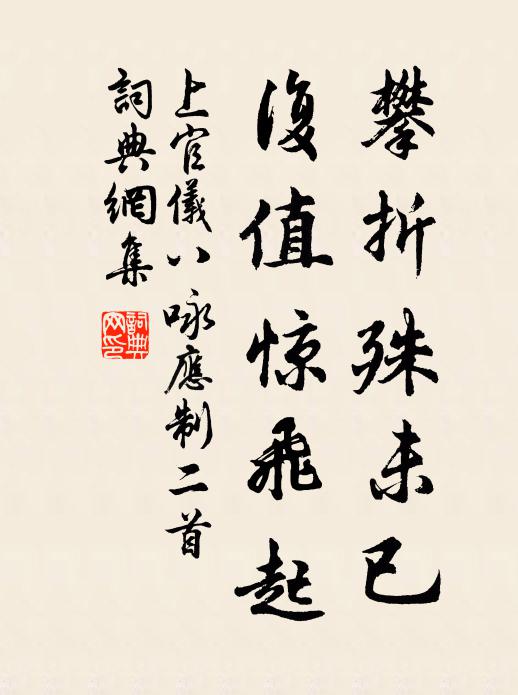 攀折殊未已
復值惊飛起
上官儀八咏應制二首
詞典網集
詞典網印